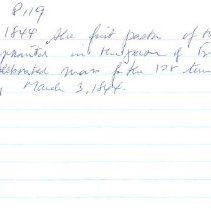 P. 119
1844 the first pastor of
in the person of Fr
celebrated mass for the 1st time
March 3, 1844.